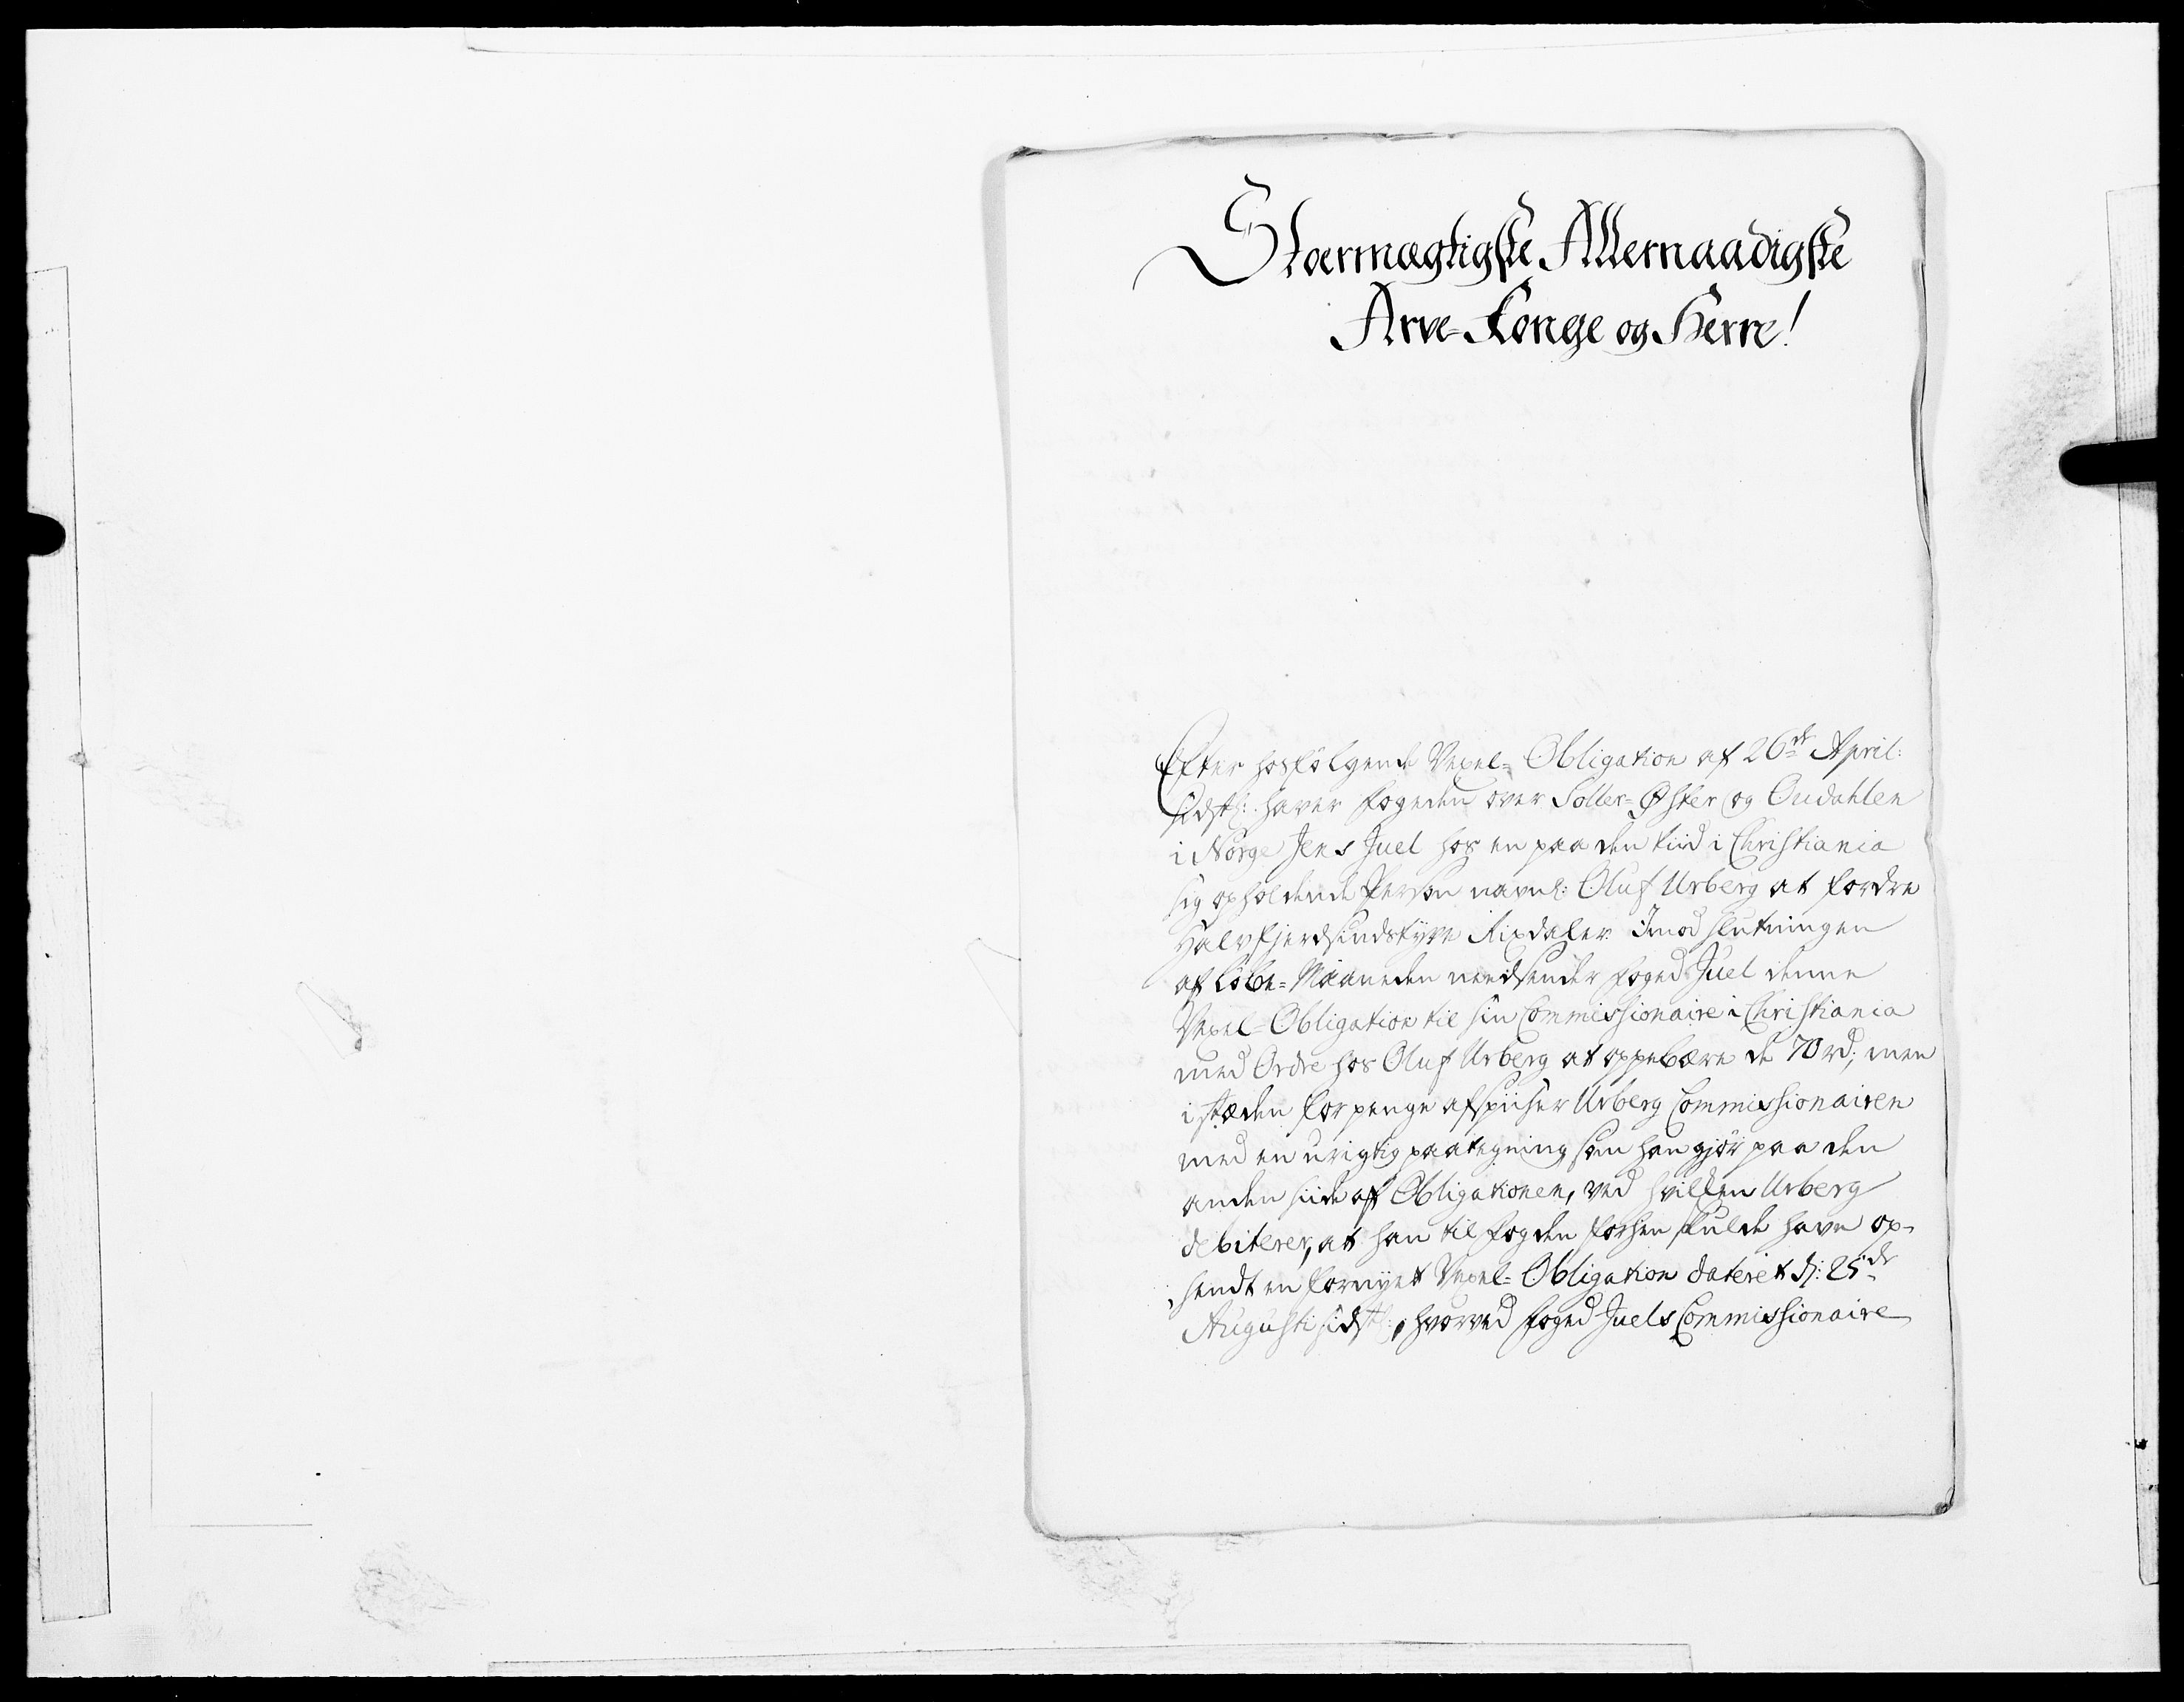 Stoermægtigste Allernaadigste
Arve-Konge og Herre!
Efter hosfølgende Vexel=Obligation af 26de April:
sidstl: haver fogeden over Soller=Øster og Oudahlen
i Norge Jens Juel hos en paa den tiid i Christiania
sig opholdende Person navnl: Oluf Urberg at fordre
Halvfjerdsindstyve Rixdaler. Imod slutningen
af løbe=Maaneden needsender foged Juel denne
Vexel=Obligation til sin Commissionaire i Christiania
med Ordre hos Oluf Urberg at oppebære de 70 rd; men
i stæden for penge afspiiser Urberg Commissionairen
med en urigtig paategning som han gjør paa den
anden side af Obligationen, ved hvilken Urberg
debiterer, at han til fogden forhen skulde have op-
sendt en fornyet Vexel=Obligation dateret d: 25de
Augusti sidstl:, hvorved foged Juels Commissionaire